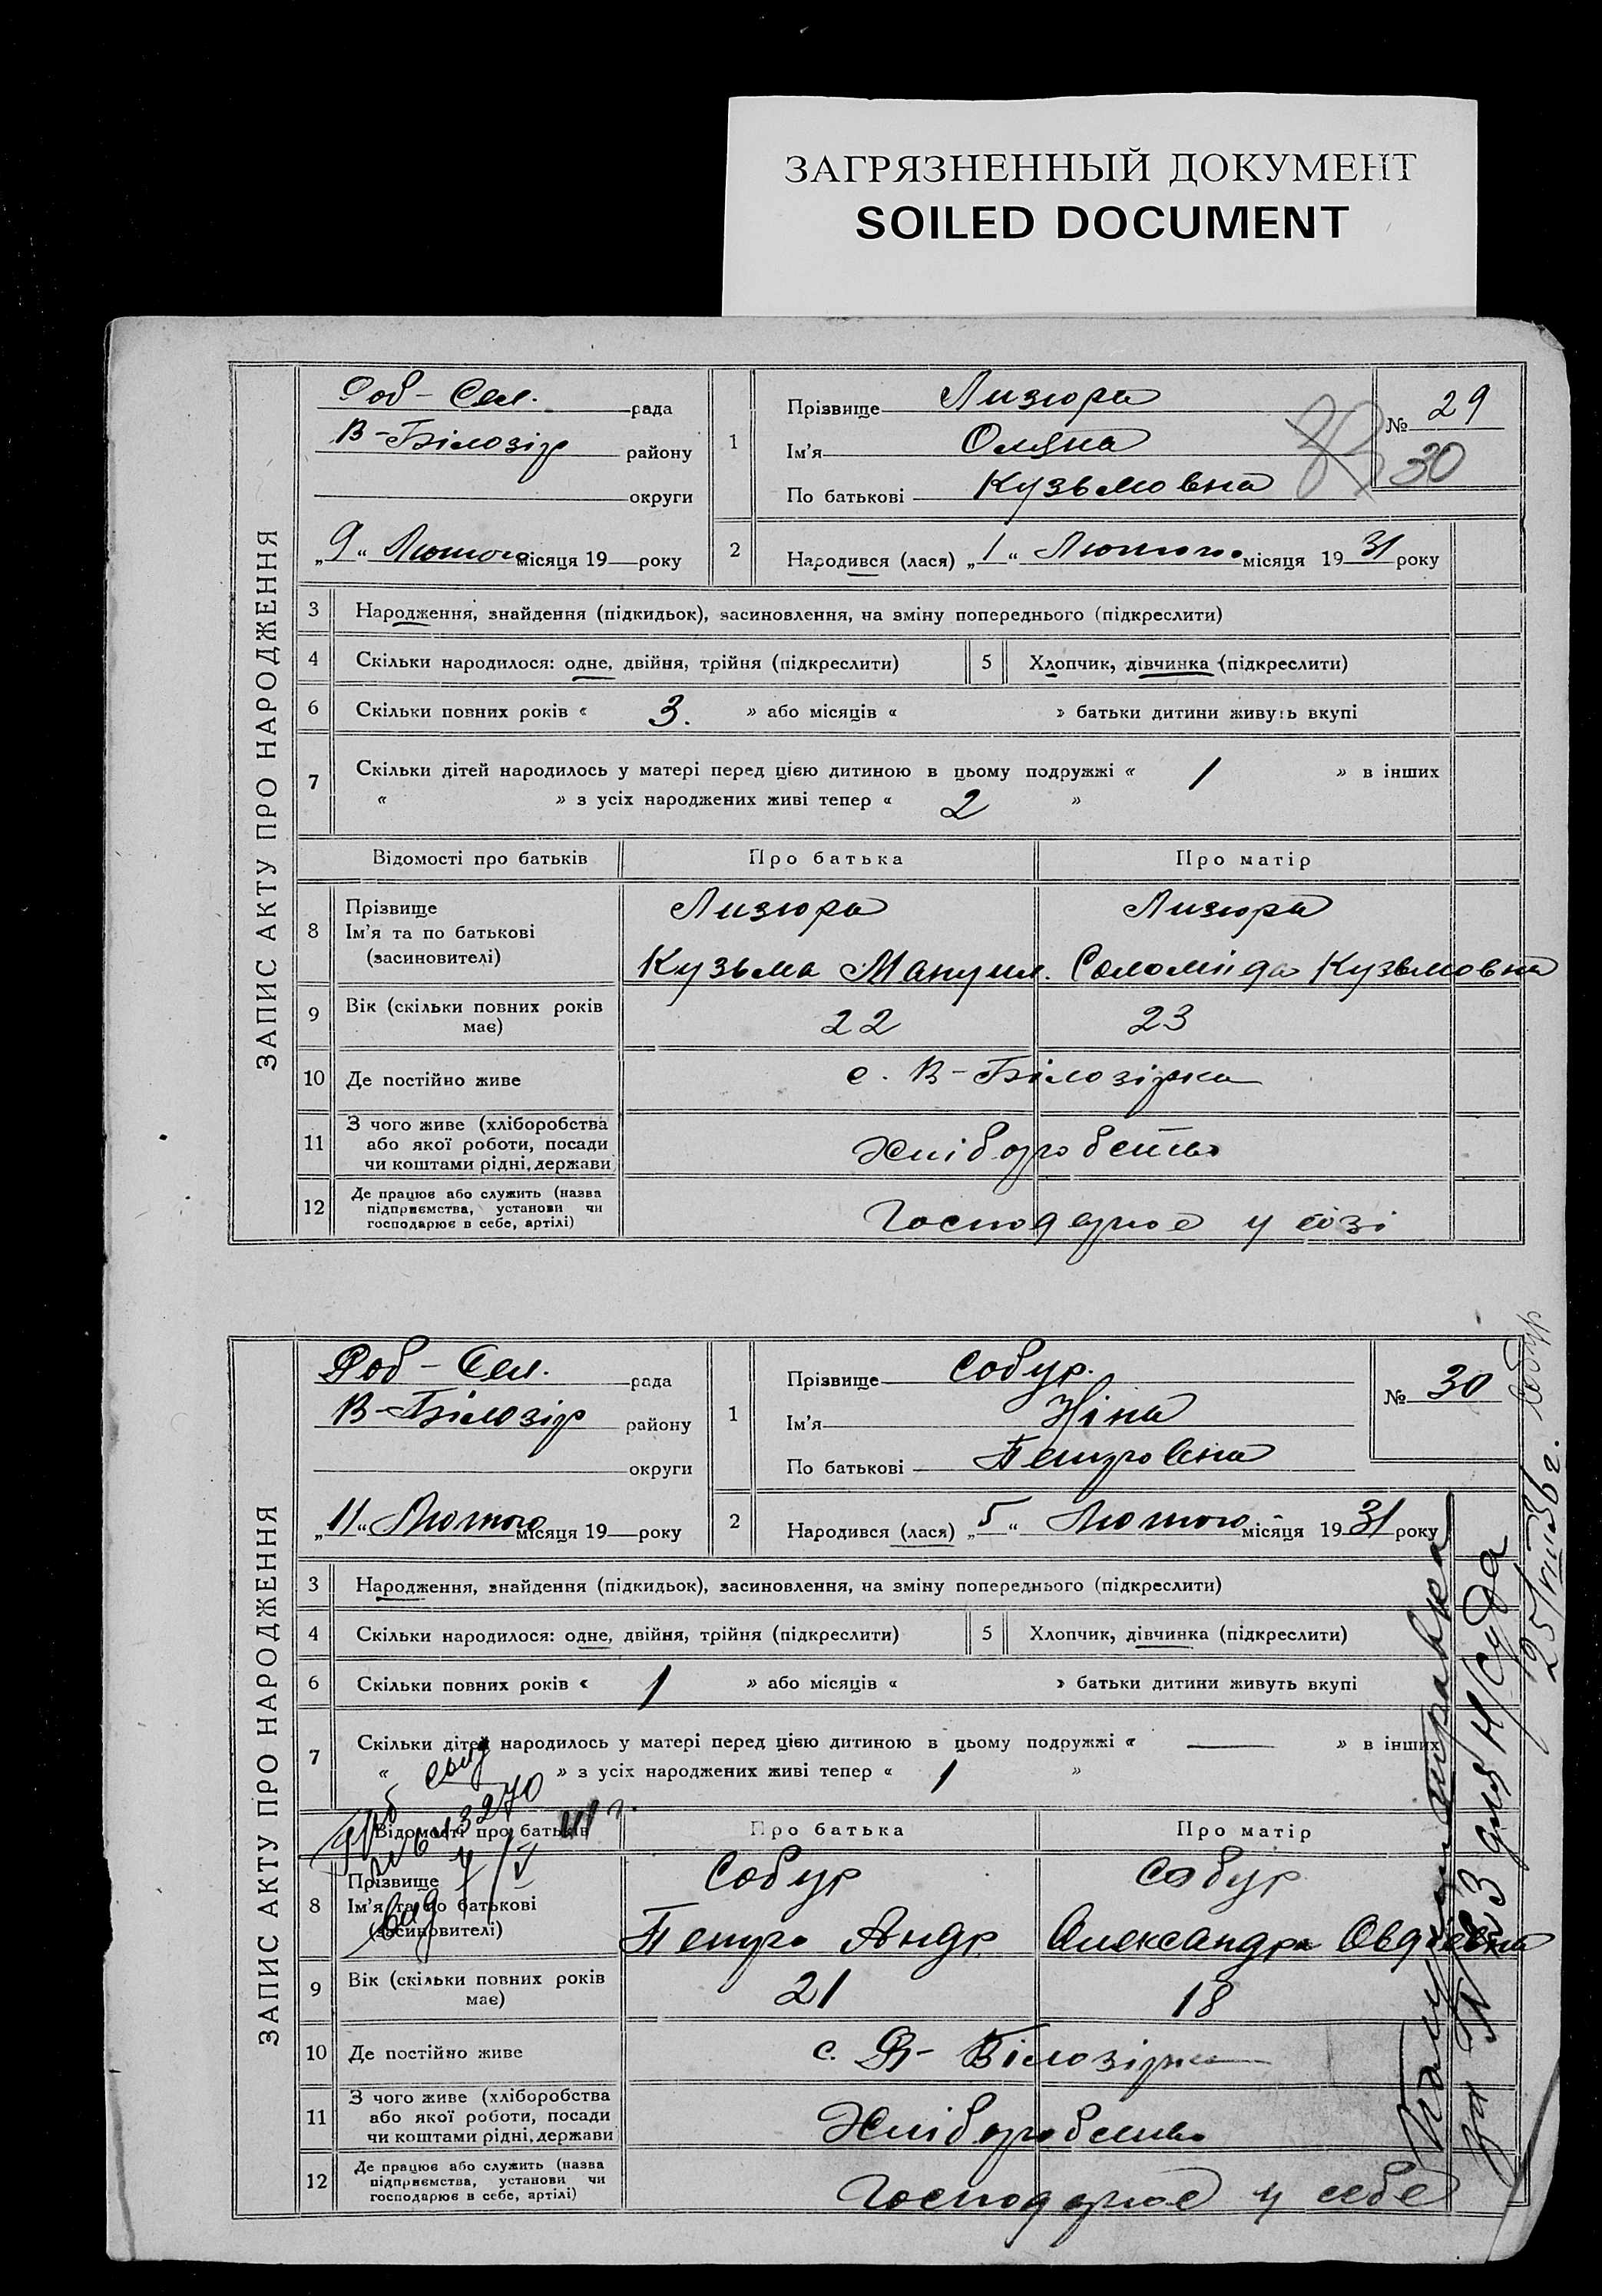 ЗАГРЯЗНЕННЫЙ ДОКУМЕНТ
SOILED DOCUMENT
ЗАПИС АКТУ ПРО НАРОДЖЕННЯ
Роб-Сел. рада
В-Білозір району
округи
„9“ Лютого місяця 19 року
1
Прізвище Лизюра
Ім'я Оляна
По батькові Кузьмовна
№ 29
30
2 Народився (лася) „1“ Лютого місяця 1931 року
3 Народження, знайдення (підкидьок), засиновлення, на зміну попереднього (підкреслити)
4 Скільки народилося: одне, двійня, трійня (підкреслити) 5 Хлопчик, дівчинка (підкреслити)
6 Скільки повних років « 3. » або місяців « » батьки дитини живуть вкупі
7 Скільки дітей народилось у матері перед цією дитиною в цьому подружжі « 1 » в інших
« » з усіх народжених живі тепер « 2 »
Відомості про батьків Про батька Про матір
8 Прізвище Лизюра Лизюра
Ім'я та по батькові
(засиновителі) Кузьма Мануил. Соломіда Кузьмовна
9 Вік (скільки повних років має) 22 23
10 Де постійно живе с. В-Білозірка
11 З чого живе (хліборобства
або якої роботи, посади
чи коштами рідні, держави Хліборобство
12 Де працює або служить (назва
підприємства, установи чи
господарює в себе, артілі) Господарює у
ЗАПИС АКТУ ПРО НАРОДЖЕННЯ
Роб-Сел. рада
В-Білозір району
округи
„11“ Лютого місяця 19 року
1
Прізвище Собур.
Ім'я Ніна
По батькові Петровна
№ 30
2 Народився (лася) „5“ Лютого місяця 1931 року
3 Народження, знайдення (підкидьок), засиновлення, на зміну попереднього (підкреслити)
4 Скільки народилося: одне, двійня, трійня (підкреслити) 5 Хлопчик, дівчинка (підкреслити)
6 Скільки повних років « 1 » або місяців « » батьки дитини живуть вкупі
7 Скільки дітей народилось у матері перед цією дитиною в цьому подружжі « — » в інших
« » з усіх народжених живі тепер « 1 »
Відомості про батьків Про батька Про матір
8 Прізвище Собур Собур
Ім'я та по батькові
(засиновителі) Петро Андр Александра Овдіевна
9 Вік (скільки повних років має) 21 18
10 Де постійно живе с. В-Білозірка
11 З чого живе (хліборобства
або якої роботи, посади
чи коштами рідні, держави Хліборобство
12 Де працює або служить (назва
підприємства, установи чи
господарює в себе, артілі) Господарює у себе
для Н/Суда